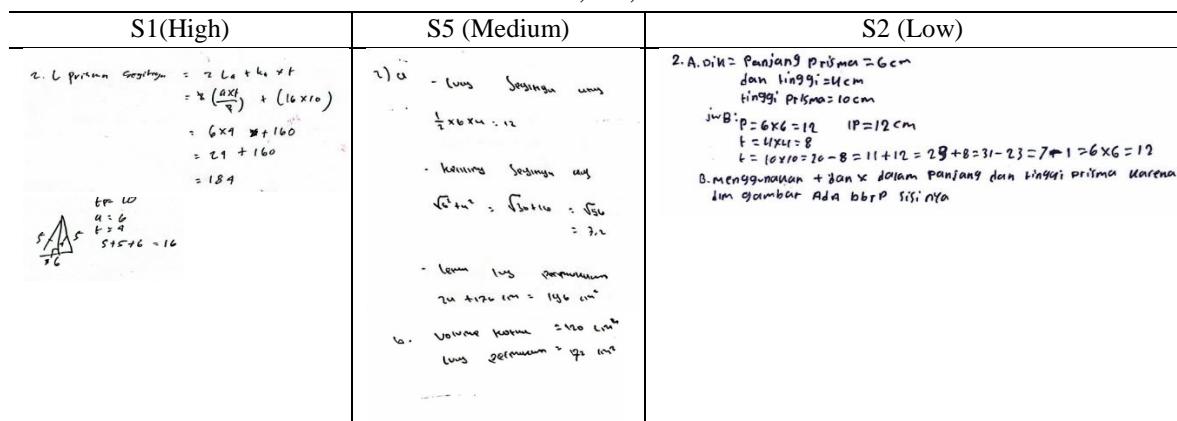 S1(High)
S5 (Medium)
S2 (Low)
2. L prisma segitiga = 2 La + ka x t
= 2 (axt/2) + (16x10)
= 6x4 + 160
= 24 + 160
= 184
tp= 10
a = 6
t = 4
5+5+6 = 16
5
5
6
2) a
- luas segitiga
1/2 x6x4 = 12
- keliling segitiga
√6²+4² = √36+16 = √56
= 7,2
- luas permukaan
b. volume = 120 cm
luas permukaan = cm²
2. A. Dik = Panjang Prisma = 6cm
dan tinggi = 4cm
tinggi Prisma = 10cm
jwB: P = 6x6 = 12 lP = 12 cm
t = 4x4 = 8
t = 10x10 = 20 - 8 = 11 + 12 = 29 + 8 = 31 - 23 = 7 - 1 = 6x6 = 12
B. menggunakan + dan x dalam Panjang dan tinggi prisma karena
dlm gambar AdA bbrP sisinya